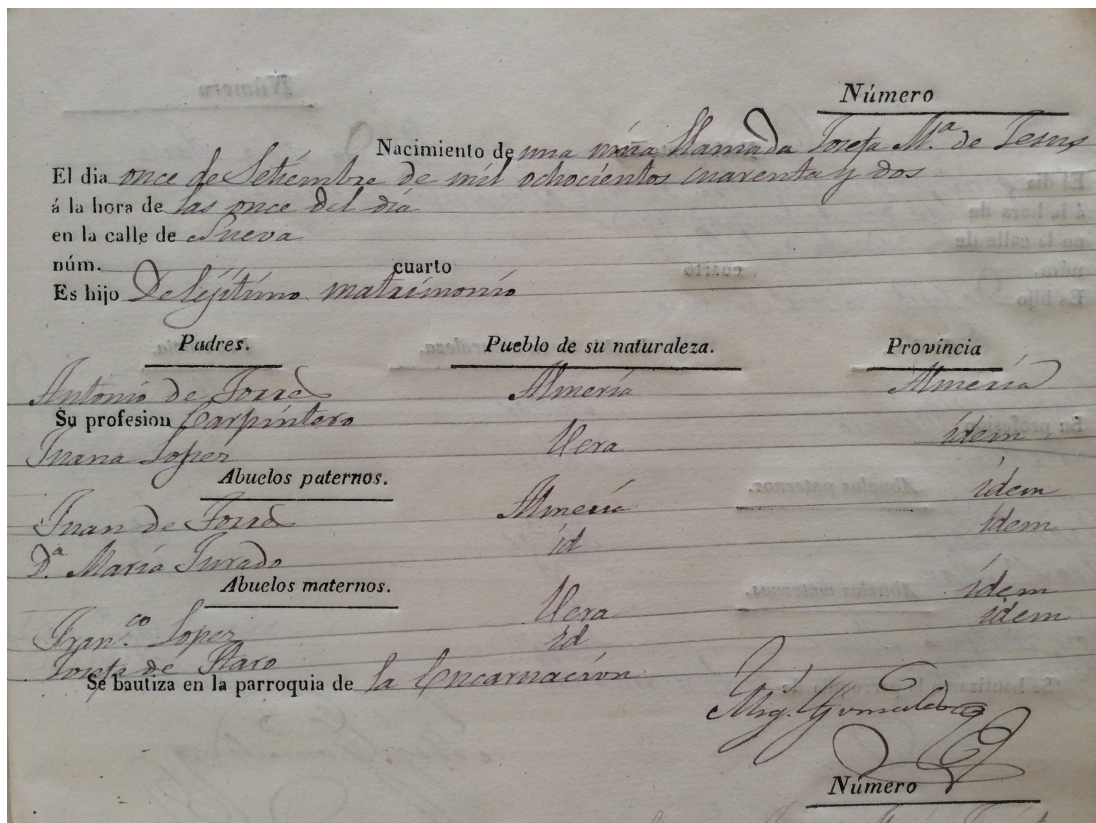 Número
Nacimiento de una niña llamada Josefa Mª. de Jesus
El dia once de Setiembre de mil ochocientos cuarenta y dos
á la hora de las once del dia
en la calle de Nueva
núm. cuarto
Es hijo De lejítimo matrimonio
Padres. Pueblo de su naturaleza. Provincia
Antonio de Torres Almería Almería
Su profesion Carpintero
Juana Lopez Vera idem
Abuelos paternos.
Juan de Torres Almería idem
Dª. María Jurado id idem
Abuelos maternos.
Fran.co Lopez Vera idem
Josefa de Haro id idem
Se bautiza en la parroquia de la Encarnación
Número